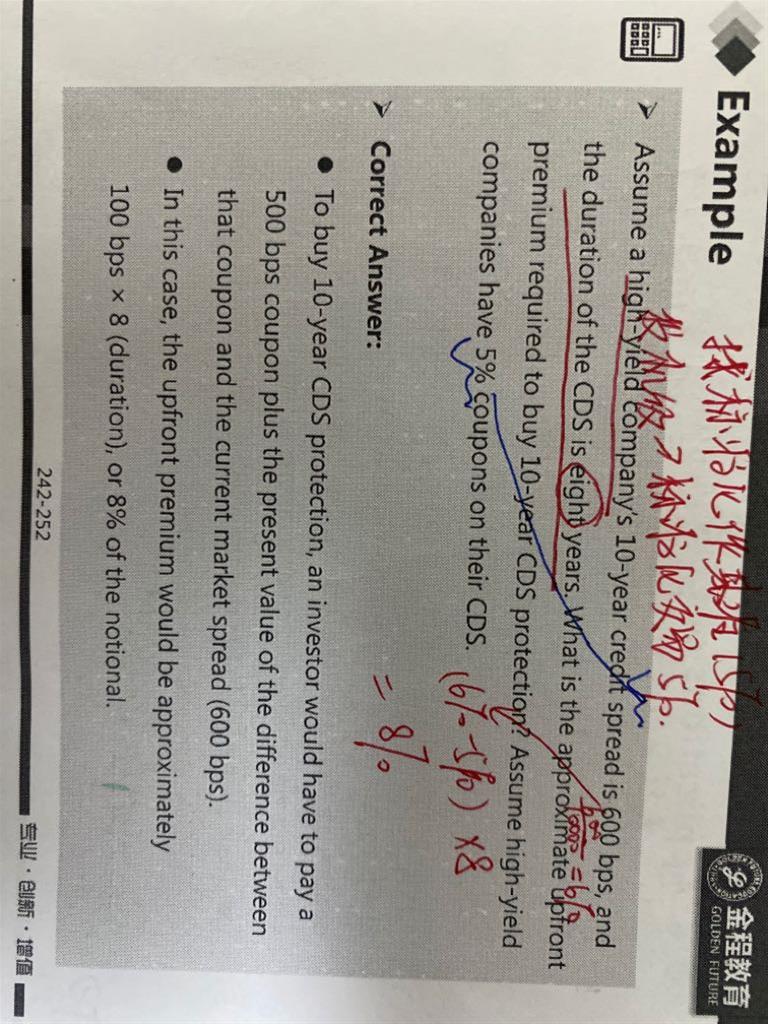 Example
金程教育
GOLDEN FUTURE
5%.
Assume a high-yield company's 10-year credit spread is 600 bps, and
the duration of the CDS is eight years. What is the approximate upfront
premium required to buy 10-year CDS protection? Assume high-yield
companies have 5% coupons on their CDS.
=6%
(6%-5%)×8
=8%
Correct Answer:
To buy 10-year CDS protection, an investor would have to pay a
500 bps coupon plus the present value of the difference between
that coupon and the current market spread (600 bps).
In this case, the upfront premium would be approximately
100 bps × 8 (duration), or 8% of the notional.
242-252
专业·创新·增值